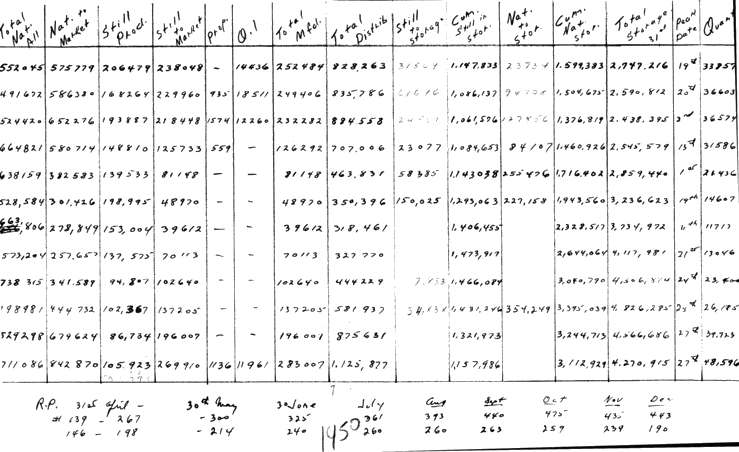 Total Nat. All Nat. to Market Still Prod. Still to Market prop. Q.I Total Mfd. Total Distrib Still to Storage Cum. Still in Stor. Nat. to Stor. Cum. Nat. Stor. Total Storage 31st Peak Date Quant
552045 575779 206479 238048 - 14436 252484 828,263 1,147,833 1,599,383 2,747,216 19th 33857
491672 586380 168264 229960 935 18511 249406 835,786 1,086,137 1,504,675 2,590,812 20th 36603
524420 652276 193887 218448 1574 12260 232282 884,558 1,061,596 1,376,819 2,438,395 3rd 36574
664821 580714 148810 125733 559 - 126292 707,006 23077 1,084,653 84107 1,460,926 2,545,579 13th 31586
638159 382583 139533 81148 - - 81148 463,831 58385 1,143038 255476 1,716,402 2,859,440 1st 26436
528,584 301,426 198,995 48970 - - 48970 350,396 150,025 1,293,063 227,158 1,943,560 3,236,623 19th 14607
663,806 278,849 153,004 39612 - - 39612 318,461 1,406,455 2,328,517 3,734,972 11th 11717
573,204 257,657 137,575 70113 - - 70113 327,770 1,473,917 2,644,064 4,117,981 21st 13046
738315 341,589 94,807 102640 - - 102640 444229 1,466,084 3,040,790 24th
198981 444732 102,367 137205 - - 137205 581937 1,431,246 354,249 3,395,039 4,826,285 28th 26,185
529298 679624 86,734 196007 - - 196001 875631 1,321,973 3,244,713 4,566,686 27th 39,723
711086 842870 105,923 269910 1136 11961 283007 1,125,877 1,157,986 3,112,929 4,270,915 27th 48,596
R.P. 31st April - 30th May 30 June July Aug Sept Oct Nov Dec
#139 - 267 - 300 325 361 393 440 475 435 443
146 - 198 - 214 240 1950 260 260 263 259 239 190